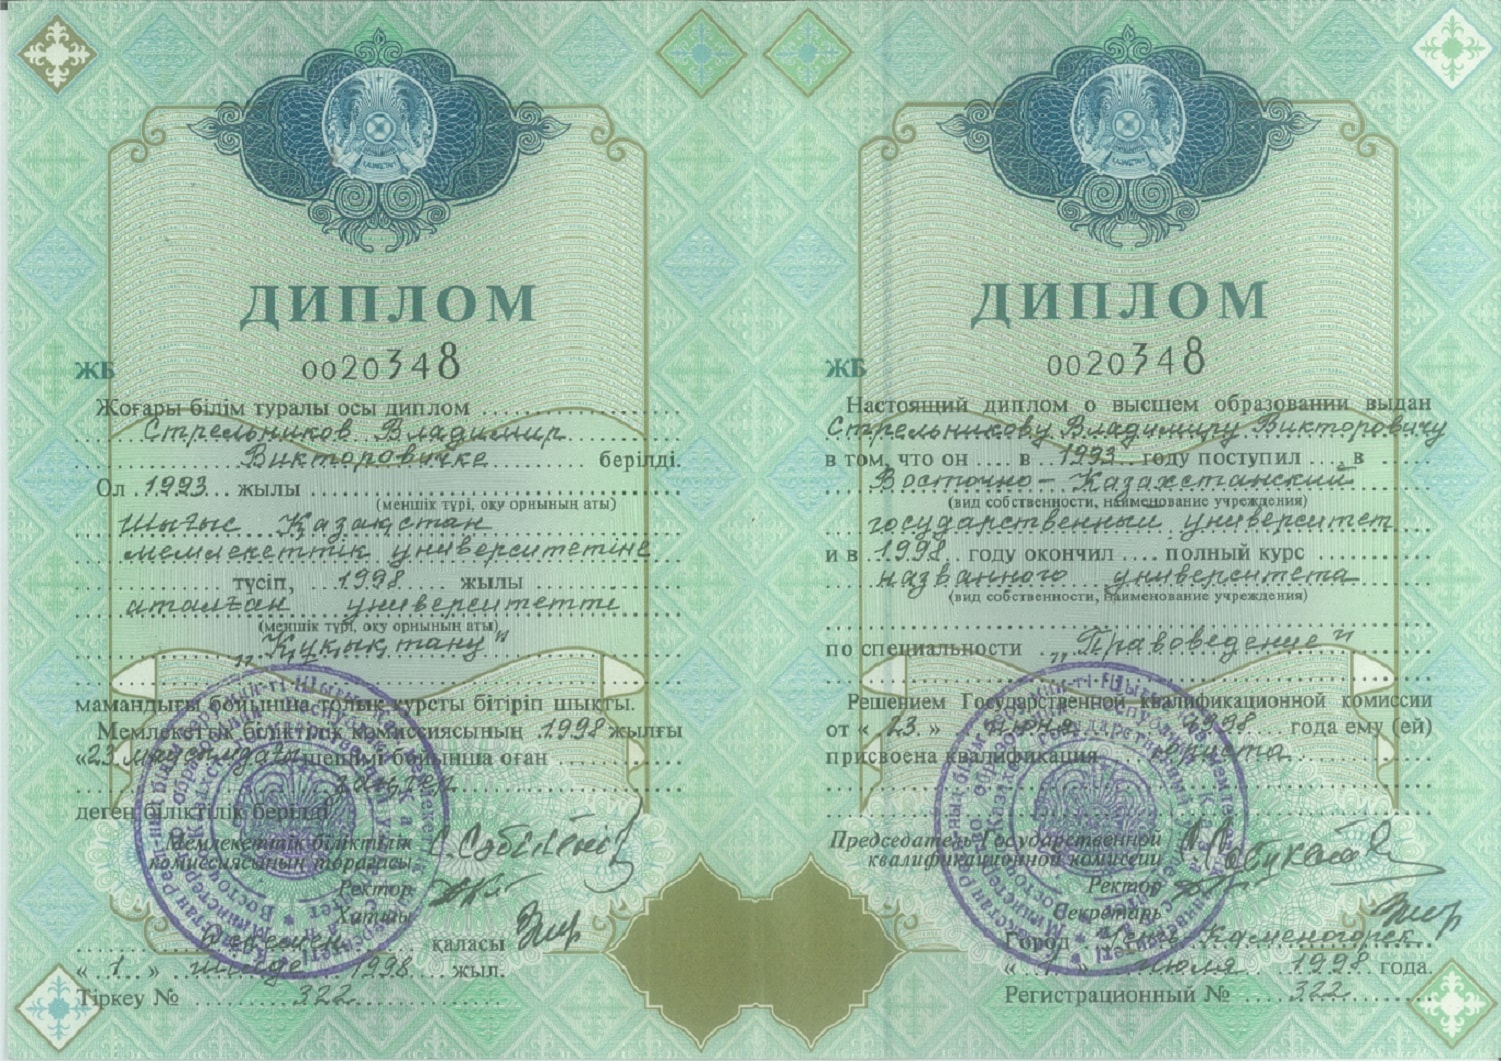 ДИПЛОМ
ЖБ 0020348
Жоғары білім туралы осы диплом
Стрельников Владимир
Викторовичке берілді.
Ол 1993 жылы
(меншік түрі, оқу орнының аты)
Шығыс Қазақстан
мемлекеттік университетіне
түсіп, 1998 жылы
аталған университетті
(меншік түрі, оқу орнының аты)
"Құқықтану"
мамандығы бойынша толық курсты бітіріп шықты.
Мемлекеттік біліктілік комиссиясының 1998 жылғы
«23 маусымдағы шешімі бойынша оған
заңгер
деген біліктілік берілді
Мемлекеттік біліктілік
комиссиясының төрағасы
Ректор
Хатшы
Өскемен қаласы
« 1 » шілде 1998 жыл.
Тіркеу № 322
ДИПЛОМ
ЖБ 0020348
Настоящий диплом о высшем образовании выдан
Стрельникову Владимиру Викторовичу
в том, что он в 1993 году поступил в
Восточно-Казахстанский
(вид собственности, наименование учреждения)
государственный университет
и в 1998 году окончил полный курс
названного университета
(вид собственности, наименование учреждения)
по специальности "Правоведение"
Решением Государственной квалификационной комиссии
от « 23 » июня 1998 года ему (ей)
присвоена квалификация юриста
Председатель Государственной
квалификационной комиссии
Ректор
Секретарь
Город Усть-Каменогорск
« 1 » июля 1998 года.
Регистрационный № 322